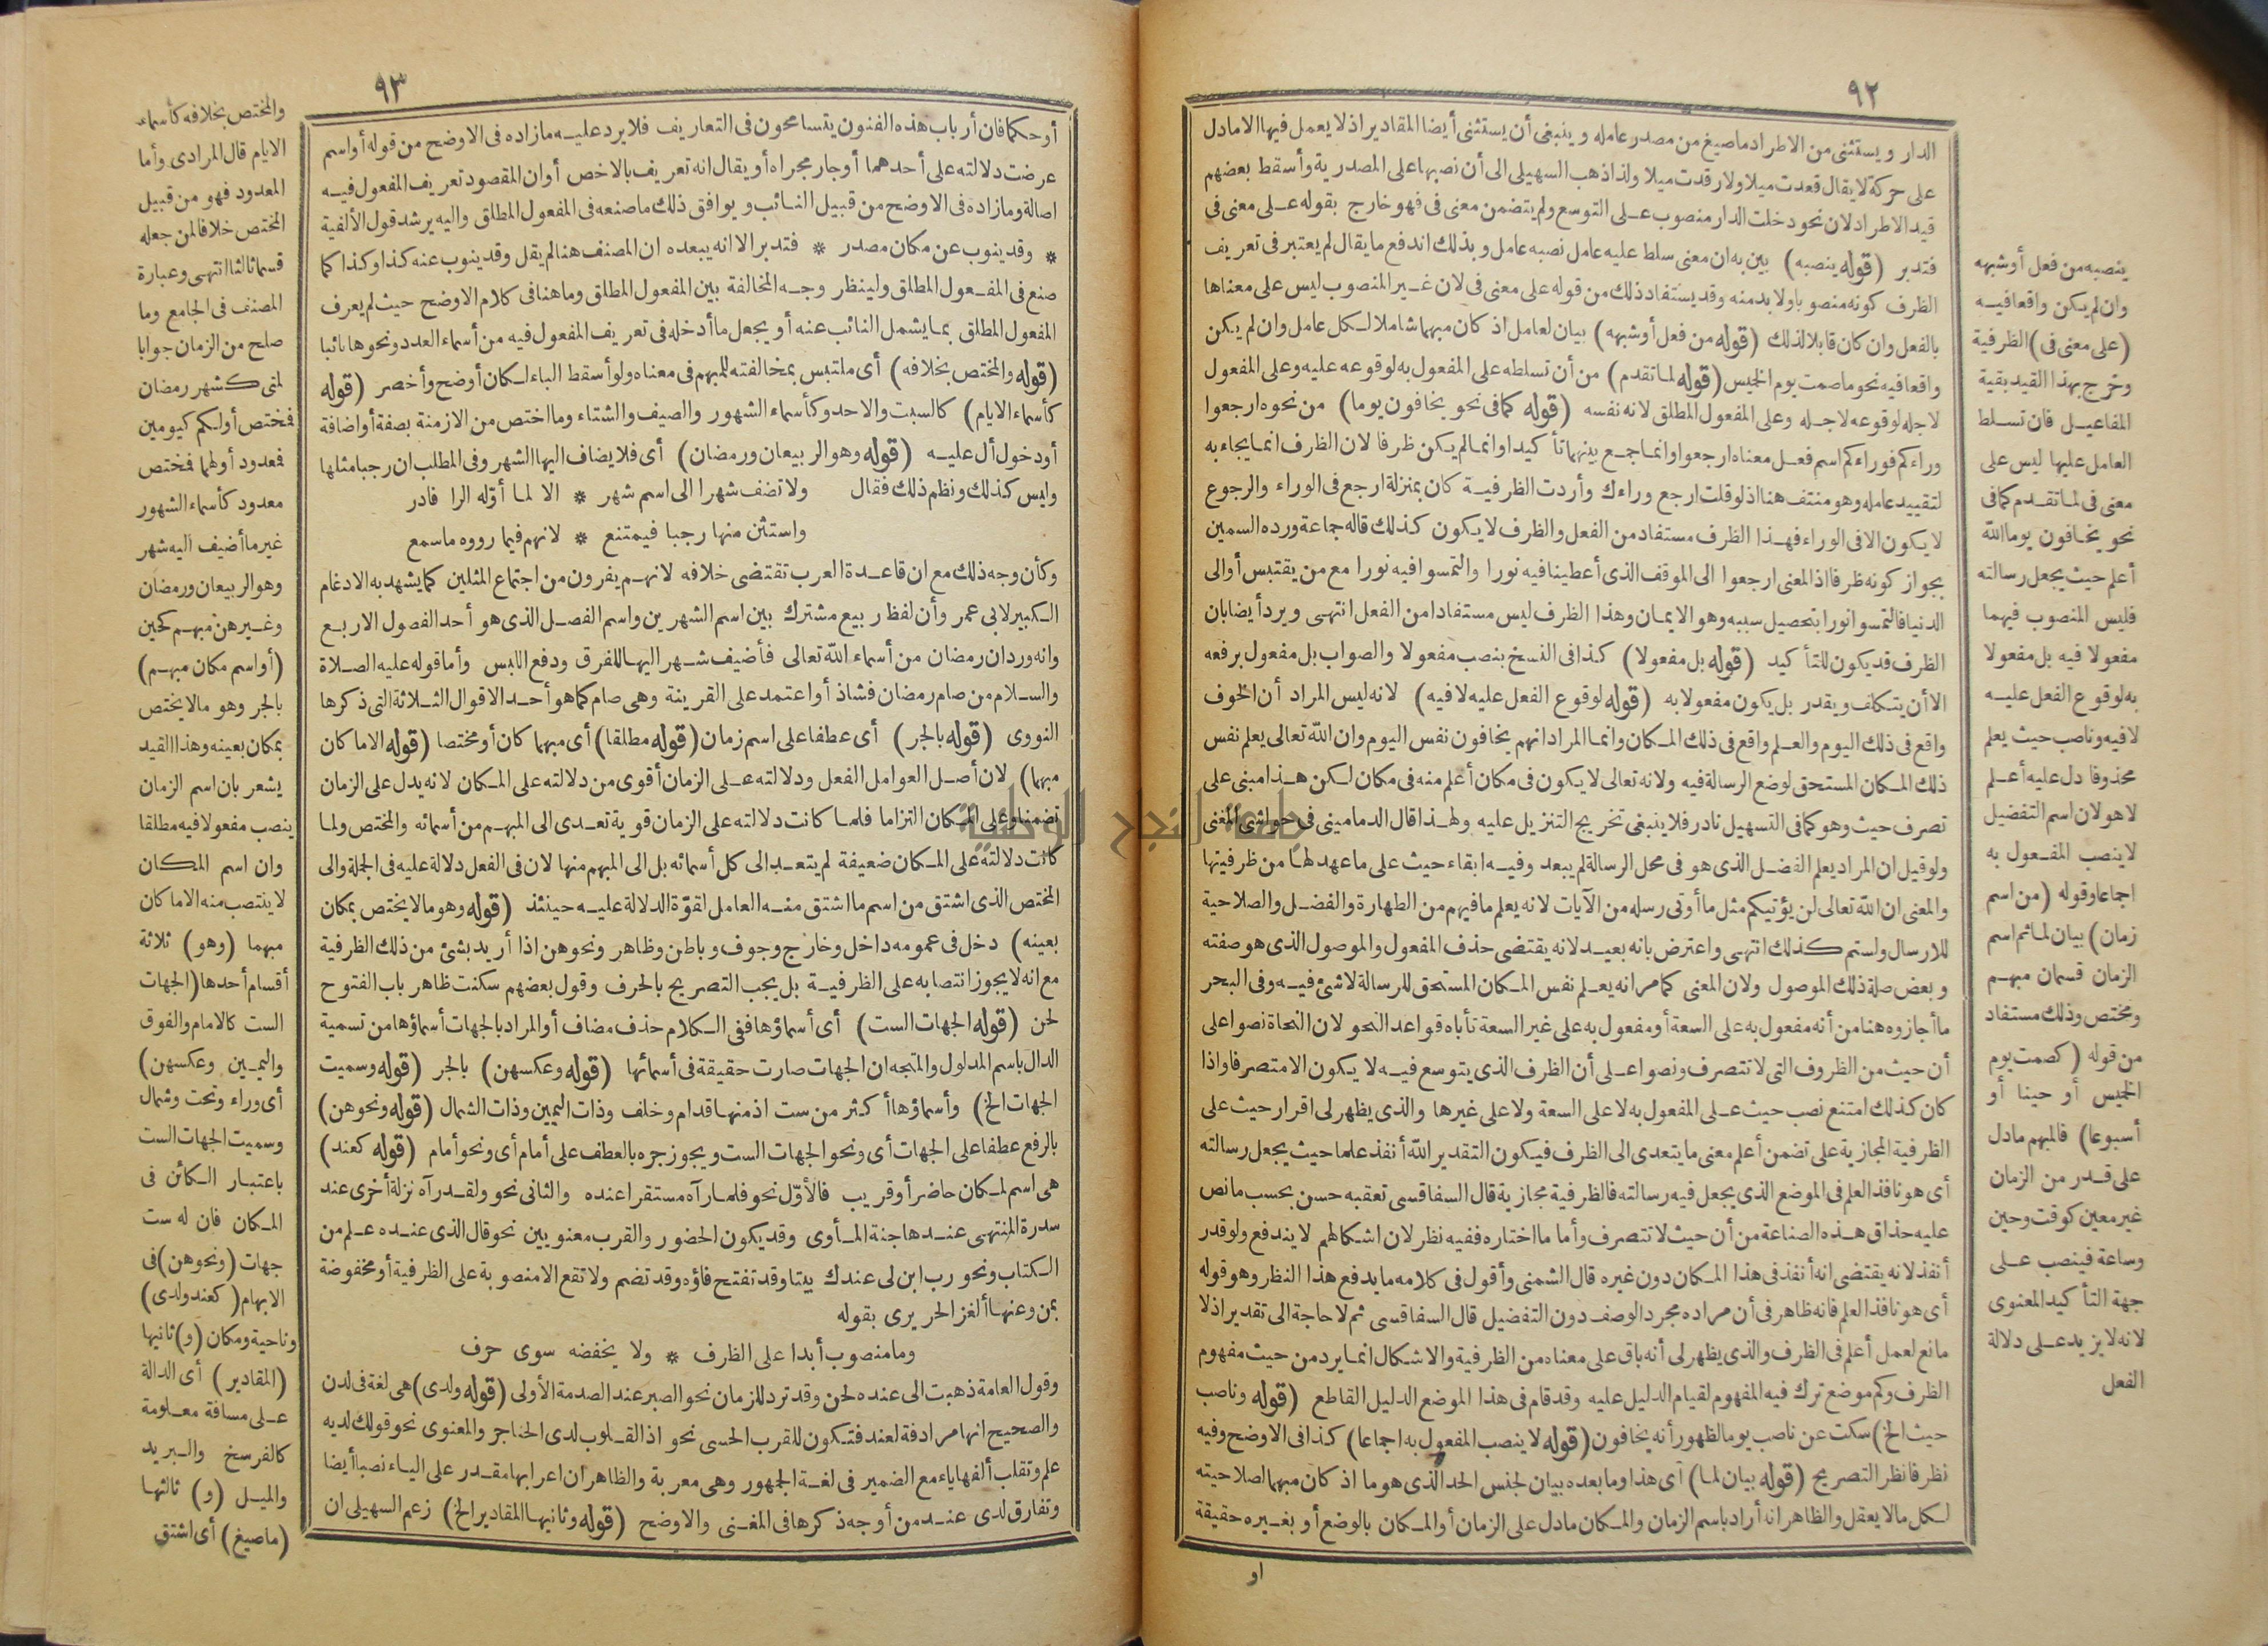 ٩٢
الدار ويستثنى من الاطراد ماصيغ من مصدر عامله وينبغى أن يستثنى أيضا المقادير اذ لا يعمل فيها الا مادل
على حركة لا يقال قعدت ميلا ولا رقدت ميلا ولذا ذهب السهيلى الى أن نصبها على المصدرية وأسقط بعضهم
قيد الاطراد لان نحو دخلت الدار منصوب على التوسع ولم يتضمن معنى فى فهو خارج بقوله على معنى فى
فتدبر (قوله ينصبه) بين به ان معنى سلط عليه عامل نصبه عامل وبذلك اندفع ما يقال لم يعتبر فى تعريف
الظرف كونه منصوبا ولا بد منه وقد يستفاد ذلك من قوله على معنى فى لان غير المنصوب ليس على معناها
بالفعل وان كان قابلا لذلك (قوله من فعل أو شبهه) بيان لعامل اذ كان مبهما شاملا لكل عامل وان لم يكن
واقعا فيه نحو ماصمت يوم الخميس (قوله لما تقدم) من أن تسلطه على المفعول به لوقوعه عليه وعلى المفعول
لاجله لوقوعه لاجله وعلى المفعول المطلق لانه نفسه (قوله كمافى نحو يخافون يوما) من نحوه ارجعوا
وراءكم فوراءكم اسم فعل معناه ارجعوا وانما جمع بينهما تأكيدا وانما لم يكن ظرفا لان الظرف انما يجاء به
لتقييد عامله وهو منتف هنا اذ لو قلت ارجع وراءك وأردت الظرفية كان بمنزلة ارجع فى الوراء والرجوع
لا يكون الا فى الوراء فهذا الظرف مستفاد من الفعل والظرف لا يكون كذلك قاله جماعة ورده السمين
بجواز كونه ظرفا اذ المعنى ارجعوا الى الموقف الذى أعطينا فيه نورا والتمسوا فيه نورا مع من يقتبس أو الى
الدنيا فالتمسوا نورا بتحصيل سببه وهو الايمان وهذا الظرف ليس مستفادا من الفعل انتهى ويرد أيضا بان
الظرف قد يكون للتأكيد (قوله بل مفعولا) كذا فى النسخ بنصب مفعولا والصواب بل مفعول برفعه
الا أن يتكلف ويقدر بل يكون مفعولا به (قوله لوقوع الفعل عليه لا فيه) لانه ليس المراد أن الخوف
واقع فى ذلك اليوم والعلم واقع فى ذلك المكان وانما المراد انهم يخافون نفس اليوم وان الله تعالى يعلم نفس
ذلك المكان المستحق لوضع الرسالة فيه ولانه تعالى لا يكون فى مكان أعلم منه فى مكان لكن هذا مبنى على
تصرف حيث وهو كمافى التسهيل نادر فلا ينبغى تخريج التنزيل عليه ولهذا قال الدمامينى فى حواشى المغنى
ولو قيل ان المراد يعلم الفضل الذى هو فى محل الرسالة لم يبعد وفيه ابقاء حيث على ما عهد لها من ظرفيتها
والمعنى ان الله تعالى لن يؤتيكم مثل ما أوتى رسله من الآيات لانه يعلم ما فيهم من الطهارة والفضل والصلاحية
للارسال ولستم كذلك انتهى واعترض بانه بعيد لانه يقتضى حذف المفعول والموصول الذى هو صفته
وبعض صلة ذلك الموصول ولان المعنى كما مر انه يعلم نفس المكان المستحق للرسالة لا شئ فيه وفى البحر
ما أجازوه هنا من أنه مفعول به على السعة أو مفعول به على غير السعة تأباه قواعد النحو لان النحاة نصوا على
أن حيث من الظروف التى لا تتصرف ونصوا على أن الظرف الذى يتوسع فيه لا يكون الا متصرفا واذا
كان كذلك امتنع نصب حيث على المفعول به لا على السعة ولا على غيرها والذى يظهر لى اقرار حيث على
الظرفية المجازية على تضمن أعلم معنى ما يتعدى الى الظرف فيكون التقدير الله أنفذ علما حيث يجعل رسالته
أى هو نافذ العلم فى الموضع الذى يجعل فيه رسالته فالظرفية مجازية قال السفاقسى تعقبه حسن بحسب ما نص
عليه حذاق هذه الصناعة من أن حيث لا تتصرف وأما ما اختاره ففيه نظر لان اشكالهم لا يندفع ولو قدر
أنفذ لانه يقتضى انه أنفذ فى هذا المكان دون غيره قال الشمنى وأقول فى كلامه ما يدفع هذا النظر وهو قوله
أى هو نافذ العلم فانه ظاهر فى أن مراده مجرد الوصف دون التفضيل قال السفاقسى ثم لا حاجة الى تقدير اذ لا
مانع لعمل أعلم فى الظرف والذى يظهر لى أنه باق على معناه من الظرفية والاشكال انما يرد من حيث مفهوم
الظرف وكم موضع ترك فيه المفهوم لقيام الدليل عليه وقد قام فى هذا الموضع الدليل القاطع (قوله وناصب
حيث الخ) سكت عن ناصب يوما لظهور أنه يخافون (قوله لا ينصب المفعول به اجماعا) كذا فى الاوضح وفيه
نظر فانظر التصريح (قوله بيان لما) أى هذا وما بعده بيان لجنس الحد الذى هو ما اذ كان مبهما لصلاحيته
لكل مالا يعقل والظاهر انه أراد باسم الزمان والمكان مادل على الزمان أو المكان بالوضع أو بغيره حقيقة
او
ينصبه من فعل أو شبهه
وان لم يكن واقعا فيه
(على معنى فى) الظرفية
وخرج بهذا القيد بقية
المفاعيل فان تسلط
العامل عليها ليس على
معنى فى لما تقدم كمافى
نحو يخافون يوما الله
أعلم حيث يجعل رسالته
فليس المنصوب فيهما
مفعولا فيه بل مفعولا
به لوقوع الفعل عليه
لا فيه وناصب حيث يعلم
محذوفا دل عليه أعلم
لا هو لان اسم التفضيل
لا ينصب المفعول به
اجماعا وقوله (من اسم
زمان) بيان لما ثم اسم
الزمان قسمان مبهم
ومختص وذلك مستفاد
من قوله (كصمت يوم
الخميس أو حينا أو
أسبوعا) فالمبهم مادل
على قدر من الزمان
غير معين كوقت وحين
وساعة فينصب على
جهة التأكيد المعنوى
لانه لا يزيد على دلالة
الفعل
٩٣
أو حكما فان أرباب هذه الفنون يتسامحون فى التعاريف فلا يرد عليه ما زاده فى الاوضح من قوله أو اسم
عرضت دلالته على أحدهما أو جار مجراه أو يقال انه تعريف بالاخص أو ان المقصود تعريف المفعول فيه
اصالة وما زاده فى الاوضح من قبيل النائب ويوافق ذلك ما صنعه فى المفعول المطلق واليه يرشد قول الألفية
* وقد ينوب عن مكان مصدر * فتدبر الا انه يبعده ان المصنف هنا لم يقل وقد ينوب عنه كذا وكذا كما
صنع فى المفعول المطلق ولينظر وجه المخالفة بين المفعول المطلق وما هنا فى كلام الاوضح حيث لم يعرف
المفعول المطلق بما يشمل النائب عنه أو يجعل ما أدخله فى تعريف المفعول فيه من أسماء العدد ونحوها نائبا
(قوله والمختص بخلافه) أى ملتبس بمخالفته للمبهم فى معناه ولو أسقط الباء لكان أوضح وأخصر (قوله
كأسماء الايام) كالسبت والاحد وكأسماء الشهور والصيف والشتاء وما اختص من الازمنة بصفة أو اضافة
أو دخول أل عليه (قوله وهو الربيعان ورمضان) أى فلا يضاف اليها الشهر وفى المطلب ان رجبا مثلها
وليس كذلك ونظم ذلك فقال ولا تضف شهرا الى اسم شهر * الا لما أوّله الرا فادر
واستثن منها رجبا فيمتنع * لانهم فيما رووه ما سمع
وكأن وجه ذلك مع ان قاعدة العرب تقتضى خلافه لانهم يفرون من اجتماع المثلين كما يشهد به الادغام
الكبير لابى عمر وأن لفظ ربيع مشترك بين اسم الشهرين واسم الفصل الذى هو أحد الفصول الاربع
وانه ورد ان رمضان من أسماء الله تعالى فأضيف شهر اليها للفرق ودفع اللبس وأما قوله عليه الصلاة
والسلام من صام رمضان فشاذ أو اعتمد على القرينة وهى صام كما هو أحد الاقوال الثلاثة التى ذكرها
النووى (قوله بالجر) أى عطفا على اسم زمان (قوله مطلقا) أى مبهما كان أو مختصا (قوله الا ما كان
مبهما) لان أصل العوامل الفعل ودلالته على الزمان أقوى من دلالته على المكان لانه يدل على الزمان
تضمنا وعلى المكان التزاما فلما كانت دلالته على الزمان قوية تعدى الى المبهم من أسمائه والمختص ولما
كانت دلالته على المكان ضعيفة لم يتعد الى كل أسمائه بل الى المبهم منها لان فى الفعل دلالة عليه فى الجملة والى
المختص الذى اشتق من اسم ما اشتق منه العامل لقوّة الدلالة عليه حينئذ (قوله وهو مالا يختص بمكان
بعينه) دخل فى عمومه داخل وخارج وجوف وباطن وظاهر ونحوهن اذا أريد بشئ من ذلك الظرفية
مع انه لا يجوز انتصابه على الظرفية بل يجب التصريح بالحرف وقول بعضهم سكنت ظاهر باب الفتوح
لحن (قوله الجهات الست) أى أسماؤها ففى الكلام حذف مضاف أو المراد بالجهات أسماؤها من تسمية
الدال باسم المدلول والمتجه ان الجهات صارت حقيقة فى أسمائها (قوله وعكسهن) بالجر (قوله وسميت
الجهات الخ) وأسماؤها أكثر من ست اذ منها قدام وخلف وذات اليمين وذات الشمال (قوله ونحوهن)
بالرفع عطفا على الجهات أى ونحو الجهات الست ويجوز جره بالعطف على أمام أى ونحو أمام (قوله كعند)
هى اسم لمكان حاضر أو قريب فالأوّل نحو فلما رآه مستقرا عنده والثانى نحو ولقد رآه نزلة أخرى عند
سدرة المنتهى عندها جنة المأوى وقد يكون الحضور والقرب معنويين نحو قال الذى عنده علم من
الكتاب ونحو رب ابن لى عندك بيتا وقد تفتح فاؤه وقد تضم ولا تقع الا منصوبة على الظرفية أو مخفوضة
بمن وعنها ألغز الحريرى بقوله
وما منصوب أبدا على الظرف * ولا يخفضه سوى حرف
وقول العامة ذهبت الى عنده لحن وقد ترد للزمان نحو الصبر عند الصدمة الأولى (قوله ولدى) هى لغة فى لدن
والصحيح انها مرادفة لعند فتكون للقرب الحسى نحو اذ القلوب لدى الحناجر والمعنوى نحو قولك لديه
علم وتقلب ألفها ياء مع الضمير فى لغة الجمهور وهى معربة والظاهر ان اعرابها مقدر على الياء نصبا أيضا
وتفارق لدى عند من أوجه ذكرها فى المغنى والاوضح (قوله وثانيها المقادير الخ) زعم السهيلى ان
والمختص بخلافه كأسماء
الايام قال المرادى وأما
المعدود فهو من قبيل
المختص خلافا لمن جعله
قسما ثالثا انتهى وعبارة
المصنف فى الجامع وما
صلح من الزمان جوابا
لمتى كشهر رمضان
فمختص أو لكم كيومين
فمعدود أو لهما فمختص
معدود كأسماء الشهور
غير ما أضيف اليه شهر
وهو الربيعان ورمضان
وغيرهن مبهم كحين
(أو اسم مكان مبهم)
بالجر وهو مالا يختص
بمكان بعينه وهذا القيد
يشعر بان اسم الزمان
ينصب مفعولا فيه مطلقا
وان اسم المكان
لا ينتصب منه الا ما كان
مبهما (وهو) ثلاثة
أقسام أحدها (الجهات
الست كالامام والفوق
واليمين وعكسهن)
أى وراء وتحت وشمال
وسميت الجهات الست
باعتبار الكائن فى
المكان فان له ست
جهات (ونحوهن) فى
الابهام (كعند ولدى)
وناحية ومكان (و) ثانيها
(المقادير) أى الدالة
على مسافة معلومة
كالفرسخ والبريد
والميل (و) ثالثها
(ماصيغ) أى اشتق